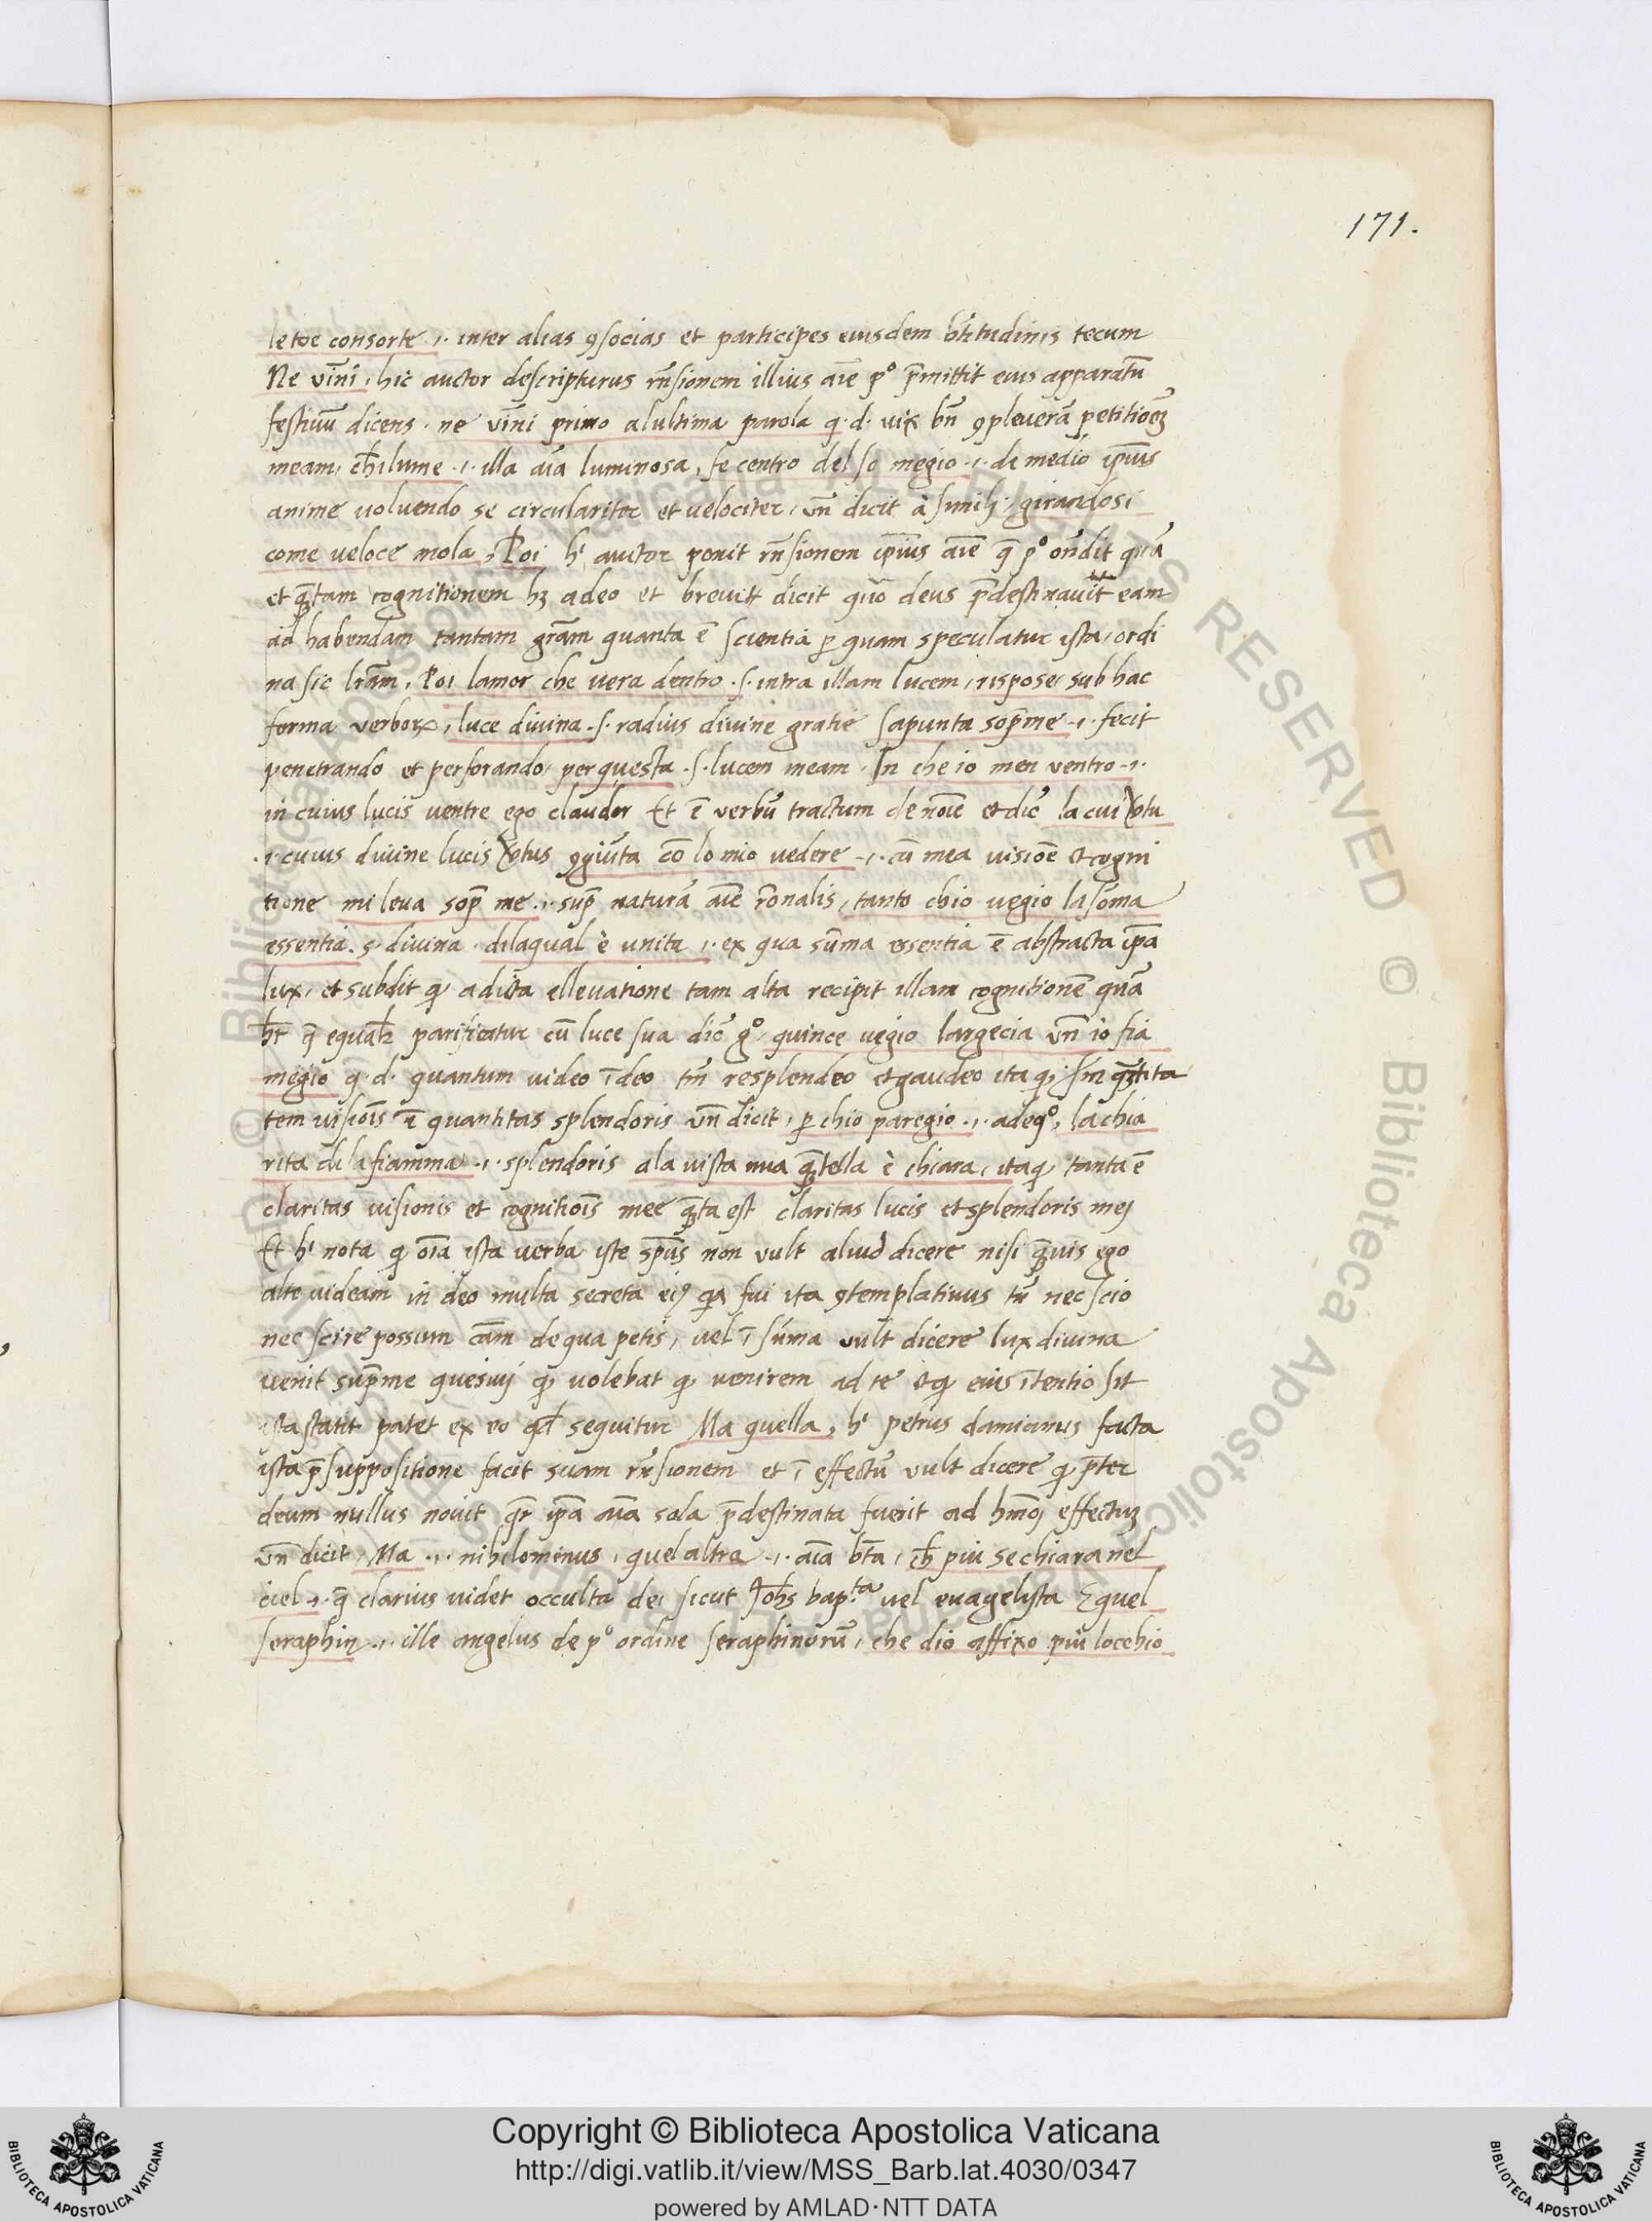 171.
le toe consorte .i. inter alias ꝯsocias et participes eiusdem bt̄itudinis tecum
Ne vīni, hic auctor descripturus rn̄sionem illius aīe p° p̄mittit eius apparatū
festiuū dicens. ne vīni primo alultima parola q. d. uix bn̄ ꝯpleuerā petitioēꝫ
meam, ch̄ilume .i. illa aīa luminosa, fe centro del so megio .i. de medio ip̄ius
anime voluendo se circulariter et velociter, vn̄ dicit à simili, girandosi
come veloce mola, Poi hͥ auctor ponit rn̄sionem ip̄ius aīe q̄ p° on̄dit quā
et qͣ̄tam cognitionem hꝫ adeo et breuitͬ dicit quō deus p̄destinauit eam
ad habendam tantam grām quanta ē scientia ꝑ quam speculatur ista, ordi
na sic lrām, Poi lamor che vera dentro .s. intra illam lucem, rispose, sub hac
forma verboꝝ, luce diuina .s. radius diuine gratie sapunta sop̄me .i. fecit
penetrando et perforando, per questa .s. lucem meam. In che io men ventro .i.
in cuius lucis ventre ego claudor Et ē verbū tractum de noīe et dic̄ la cui v̓tu
.i. cuius diuine lucis v̓tus ꝯgiūta cō lo mio vedere .i. cū mea visiōe et cogni
tione mi leua sop̄ me .i. sup̄ naturā aīe rōnalis, tanto chio vegio la sōma
essentia .s. diuina. dilaqual è unita .i. ex qua sūma essentia ē abstracta ip̄a
lux, et subdit qꝫ adicta elleuatione tam alta recipit illam cognitionē quā
ht̄ q̄ equalꝛ parificatur cū luce sua dic̄ g° quince vegio largecia vn̄ io fia
megio q. d. quantum video ī deo tm̄ resplendeo et gaudeo ita qꝫ sm̄ qͣ̄tita
tem visiōis ē quantitas splendoris vn̄ dicit, ꝑ chio paregio .i. adeq°, la chia
rita dila fiamma .i. splendoris ala vista mia qͣ̄tella è chiara, ita qꝫ tanta ē
claritas visionis et cognitiōis mee qͣ̄ta est claritas lucis et splendoris mei
Et hͥ nota qꝫ oīa ista verba iste sp̄us non vult aliud dicere nisi qͣ̄uis ego
alte videam in deo multa secreta eiꝰ qꝛ fui ita ꝯtemplatiuus tn̄ nec scio
nec scire possum cām de qua petis, uel ī sūma vult dicere lux diuina
venit sup̄me quesiuj qꝫ volebat qꝫ venirem ad te et qꝫ eius ītentio sit
ista statit patet ex eo qd̄ sequitur Ma quella, hͥ petrus damianus facta
ista p̄suppositione facit suam rn̄sionem et ī effectū vult dicere qꝫ p̄ter
deum nullus nouit qr̄ ip̄a aīa sola p̄destinata fuerit ad hmōi effectuꝫ
vn̄ dicit, Ma .i. nihilominus, quel altra .i. aīa bt̄a, ch̄ piu se chiara nel
ciel .i. q̄ clarius videt occulta dei sicut Joh̄s bap.ta uel euagelista E quel
seraphin .i. ille angelus de p° ordine seraphinorū, che dio affixo più locchio
Copyright © Biblioteca Apostolica Vaticana
http://digi.vatlib.it/view/MSS_Barb.lat.4030/0347
powered by AMLAD·NTT DATA
BIBLIOTECA APOSTOLICA VATICANA
BIBLIOTECA APOSTOLICA VATICANA